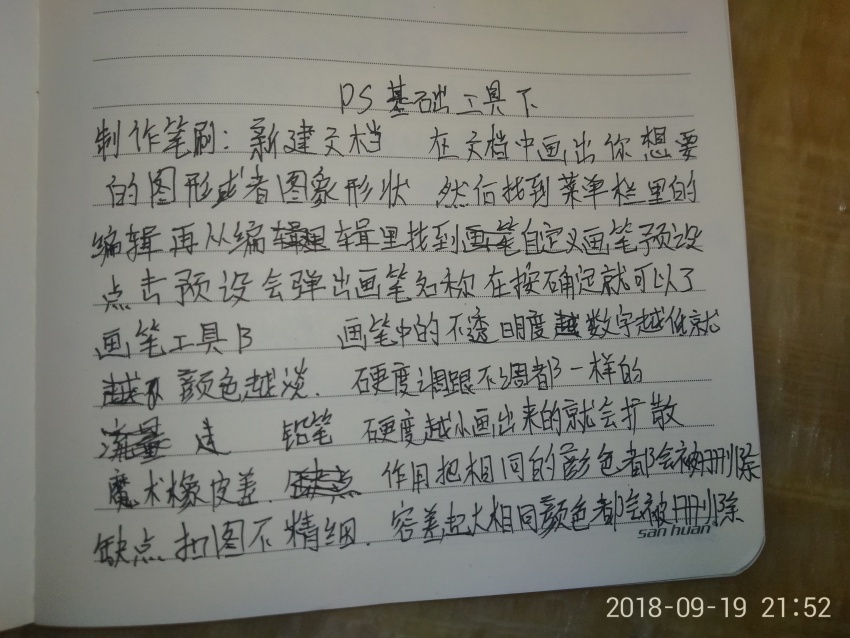 PS基础工具下
制作笔刷：新建文档 在文档中画出你想要
的图形或者图象形状 然后找到菜单栏里的
编辑再从编辑里找到画笔自定义画笔预设
点击预设会弹出画笔名称在按确定就可以了
画笔工具B 画笔中的不透明度越数字越低就
颜色越淡. 硬度调跟不调都一样的
铅笔 硬度越小画出来的就会扩散
魔术橡皮差. 作用把相同的颜色都会被删除
缺点扣图不精细. 容差起大相同颜色都会被删除
san huan
2018-09-19 21:52